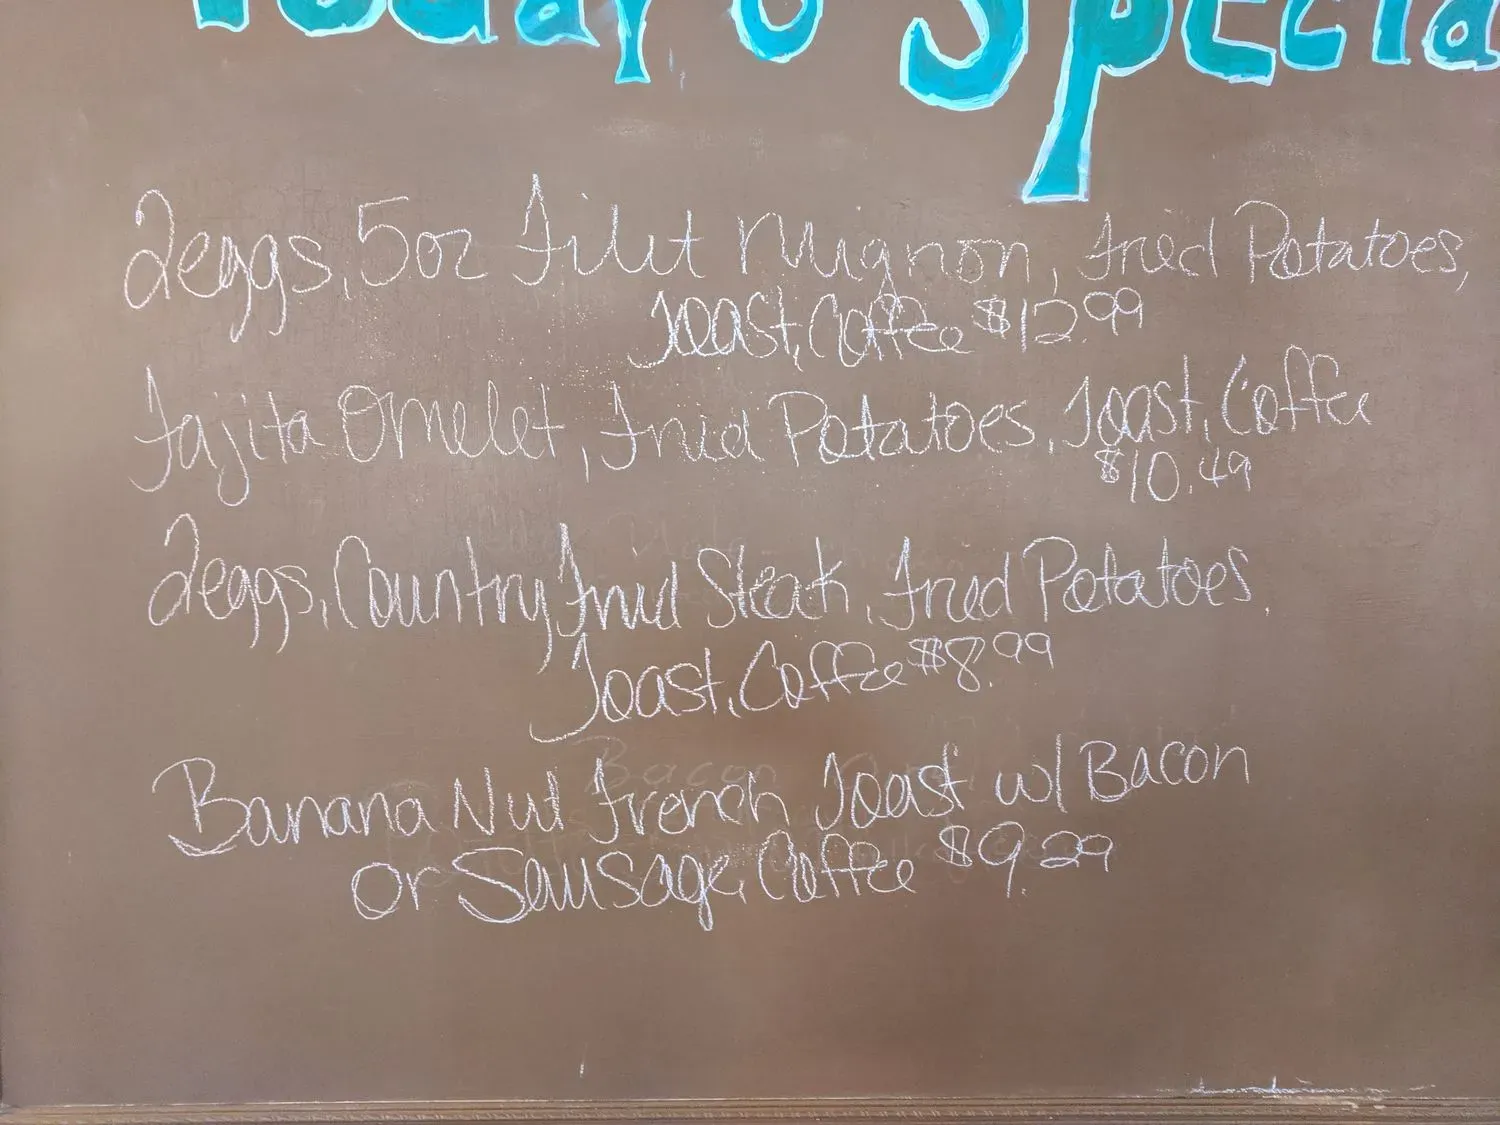 Today's Specia
2eggs, 5oz Filet Mignon, Fried Potatoes,
Toast, Coffee $12.99
Fajita Omelet, Fried Potatoes, Toast, Coffee
$10.49
2eggs, Country Fried Steak, Fried Potatoes,
Toast, Coffee $8.99
Banana Nut French Toast w/ Bacon
or Sausage, Coffee $9.29